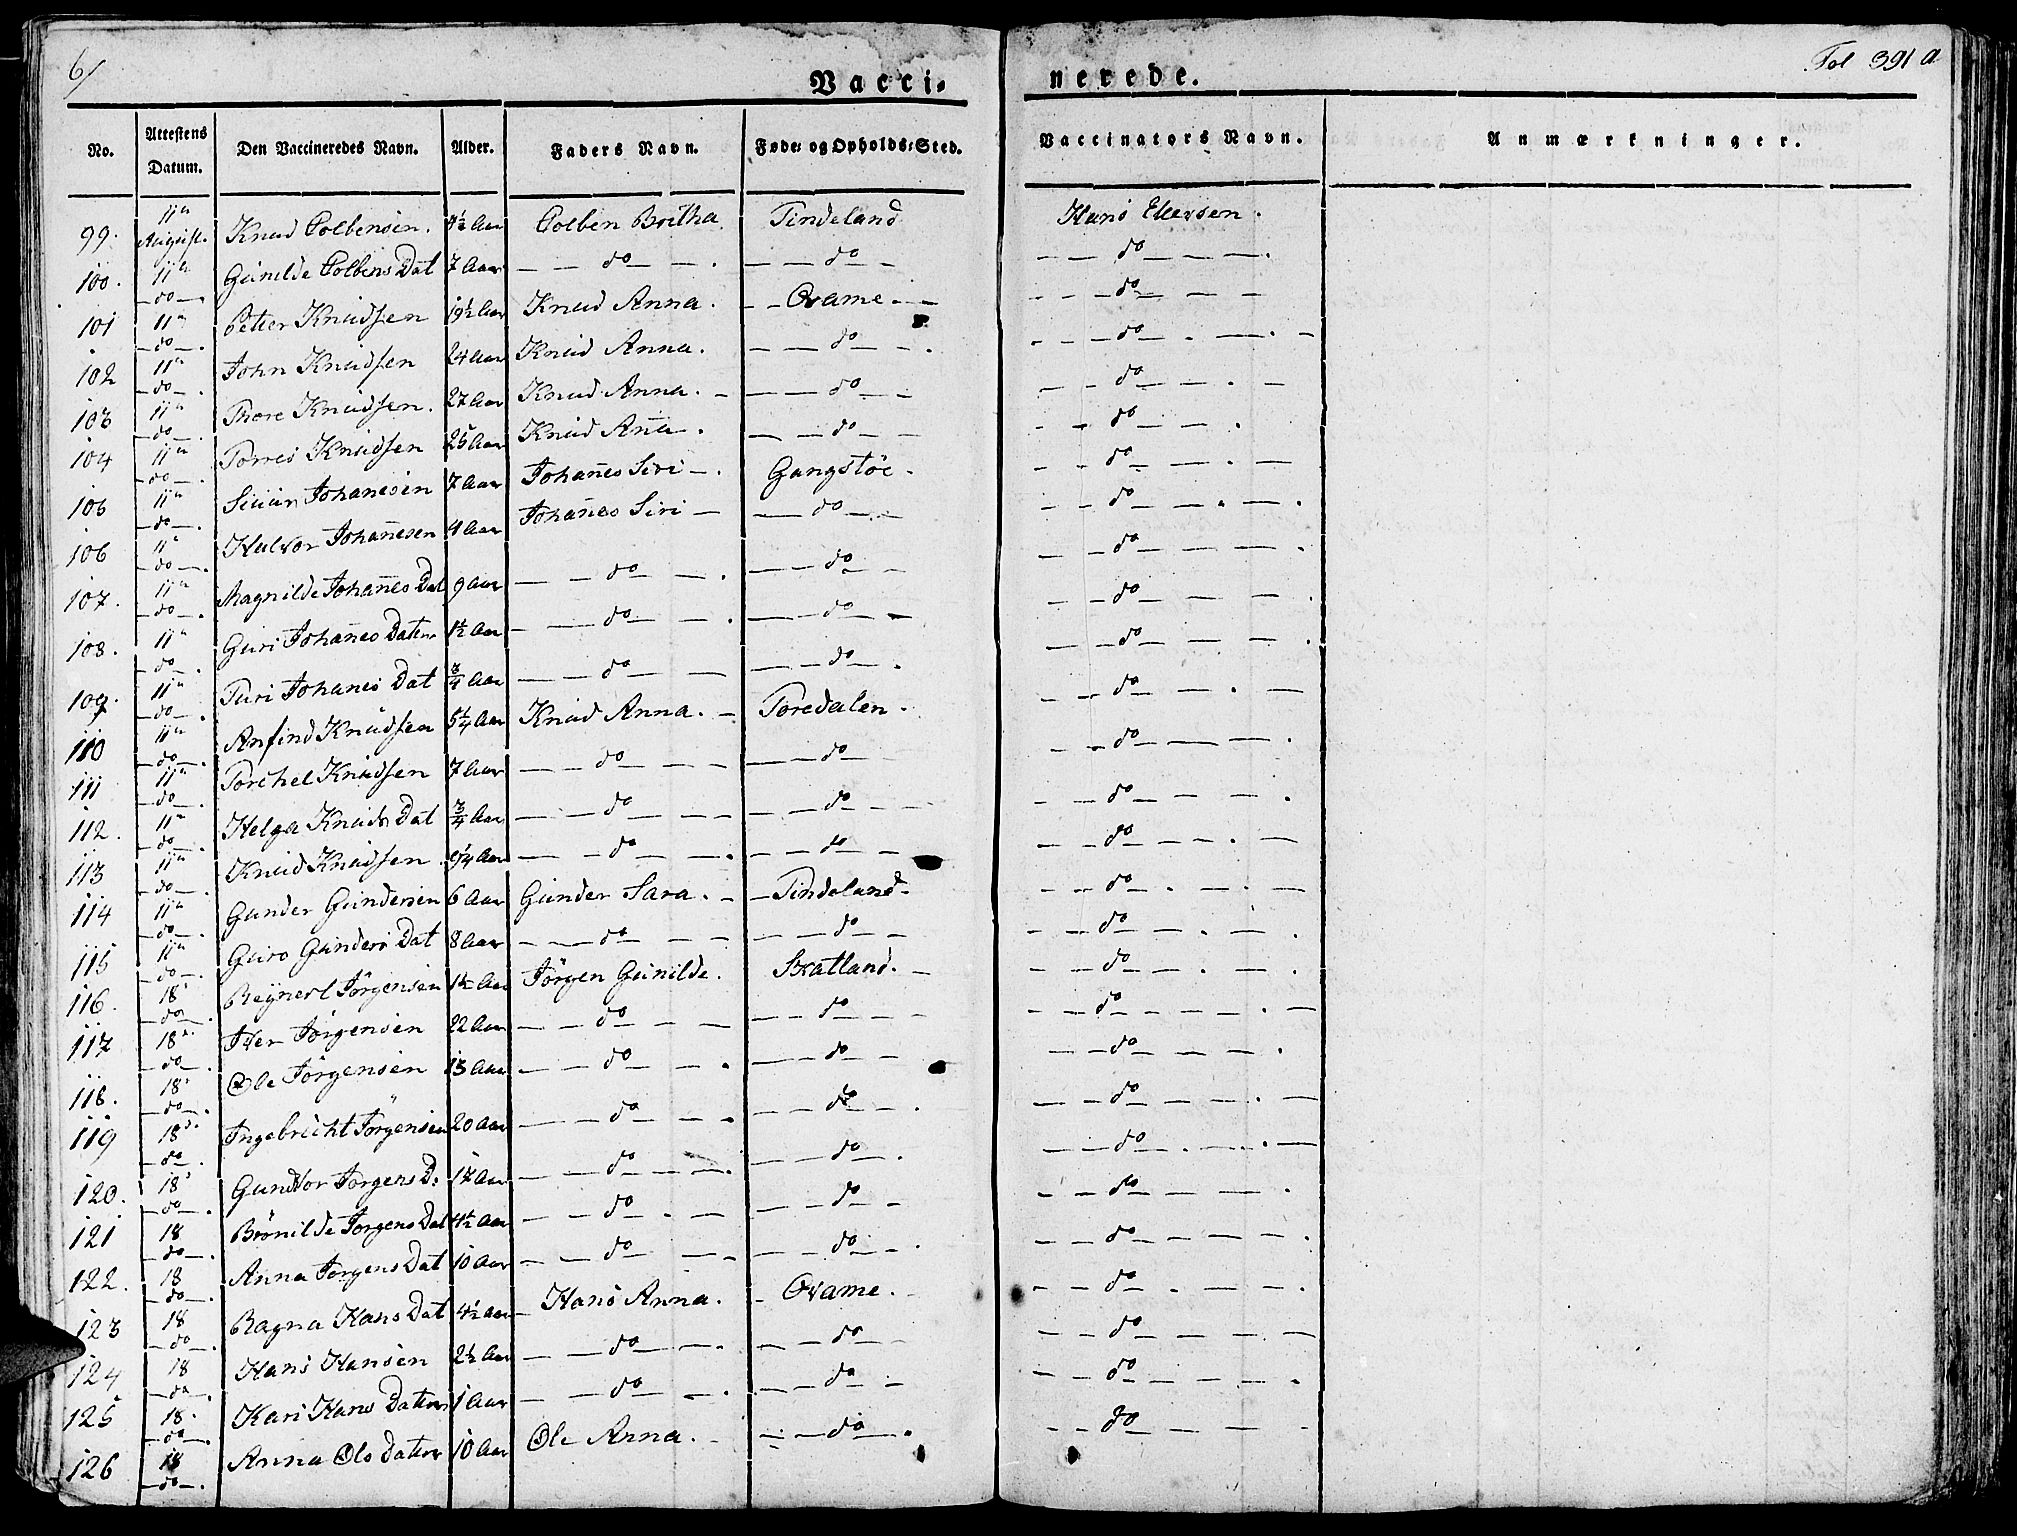 6/
Vacci- nerede.
Fol 391 a
No. Attestens Datum. Den Vaccineredes Navn. Alder. Faders Navn. Føde- og Opholds-Sted. Vaccinators Navn. Anmærkninger.
99. 11te August. Knud Colbensen. 4½ Aar Colben Britha Tindeland Hans Ellersen.
100. 11te do Gunilde Colbens Dat 7 Aar do do do
101 11te do Petter Knudsen 19½ Aar Knud Anna. Qvame do
102 11te do John Knudsen 24 Aar Knud Anna. do do
103 11te do Thore Knudsen. 27 Aar Knud Anna. do do
104 11te do Torres Knudsen 25 Aar Knud Aña. do do
105 11te do Johanesen 7 Aar Johañes Siri Gangstöe. do
106 11te do Halvor Johañesen 4 Aar Johañes Siri do do
107. 11te do Magnilde Johañes Dat 9 Aar do do do
108. 11te do Guri Johañes Datter 1½ Aar do do do
109. 11te do Turi Johanes Dat ¾ Aar do do do
110 11te do Anfind Knudsen 5¼ Aar Knud Anna. Toredalen. do
111 11te do Torchel Knudsen 7 Aar do do do
112. 11te do Helga Knuds Dat ¾ Aar do do do
113 11te do Knud Knudsen. 9¼ Aar do do do
114 11te do Gunder Gundersen 6 Aar Gunder Sara. Tindeland. do
115 11te do Guro Gunders Dat 8 Aar do do do
116. 18. do Reÿnert Jörgensen 1½ Aar Jörgen Gunilde. Skatland. do
117 18. do Iver Jörgensen 22 Aar do do do
118. 18. do Ole Jörgensen 13 Aar do do do
119 18. do Ingebricht Jörgensen 20 Aar do do do
120. 18. do Gundvor Jörgens D. 17 Aar do do do
121 18 do Brönilde Jorgens Dat 4½ Aar do do do
122. 18 do Anna Jorgens Dat 10 Aar do do do
123 18 do Ragna Hans Dat 4½ Aar Hans Anna. Qvame. do
124 18 do Hans Hansen 2½ Aar do do do
125 18. do Kari Hans Datter 1 Aar do do do
126 18 do Anna Ols Datter 10 Aar Ole Anna. do do